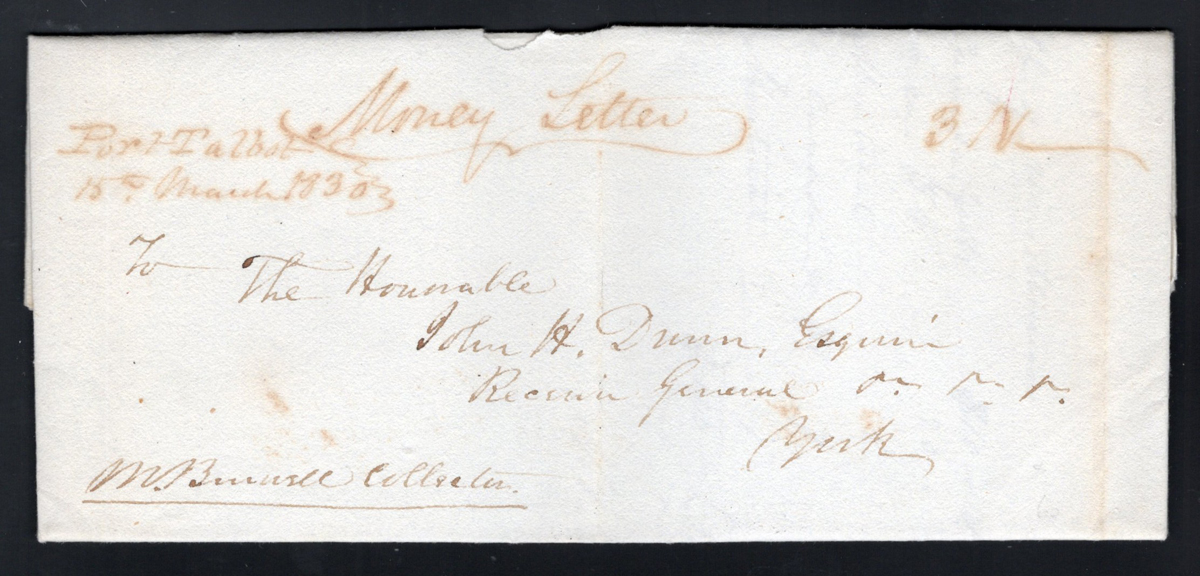 Money Letter
3 N
Port Talbot
15th March 1830
To
The Honorable
John H. Dunn, Esquire
Receiver General
York
M. Burwell Collector.